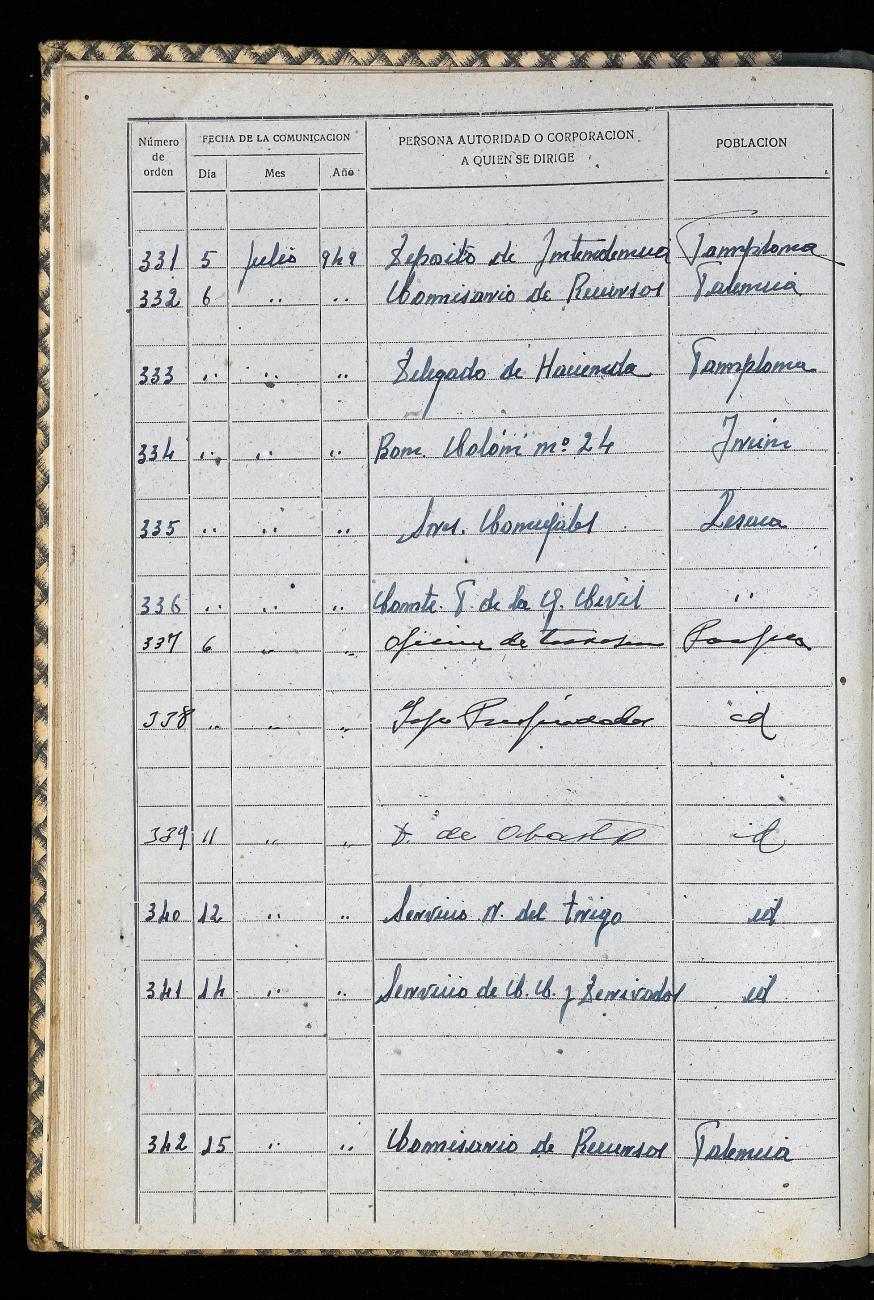 Número de orden FECHA DE LA COMUNICACION PERSONA AUTORIDAD O CORPORACION A QUIEN SE DIRIGE POBLACION
Día Mes Año
331 5 Julio 949 Deposito de Intendencia Pamplona
332 6 " " Comisario de Recursos Palencia
333 " " " Delegado de Hacienda Pamplona
334 " " " Bon. Colón nº 24 Irún
335 " " " Sres. Concejales Lesaca
336 " " " Comte. P. de la G. Civil "
337 6 " " de Pampla
338 " " " id
339 11 " " D. de Abastos id
340 12 " " Servicio N. del trigo id
341 14 " " Servicio de C. C. y Derivados id
342 15 " " Comisario de Recursos Palencia